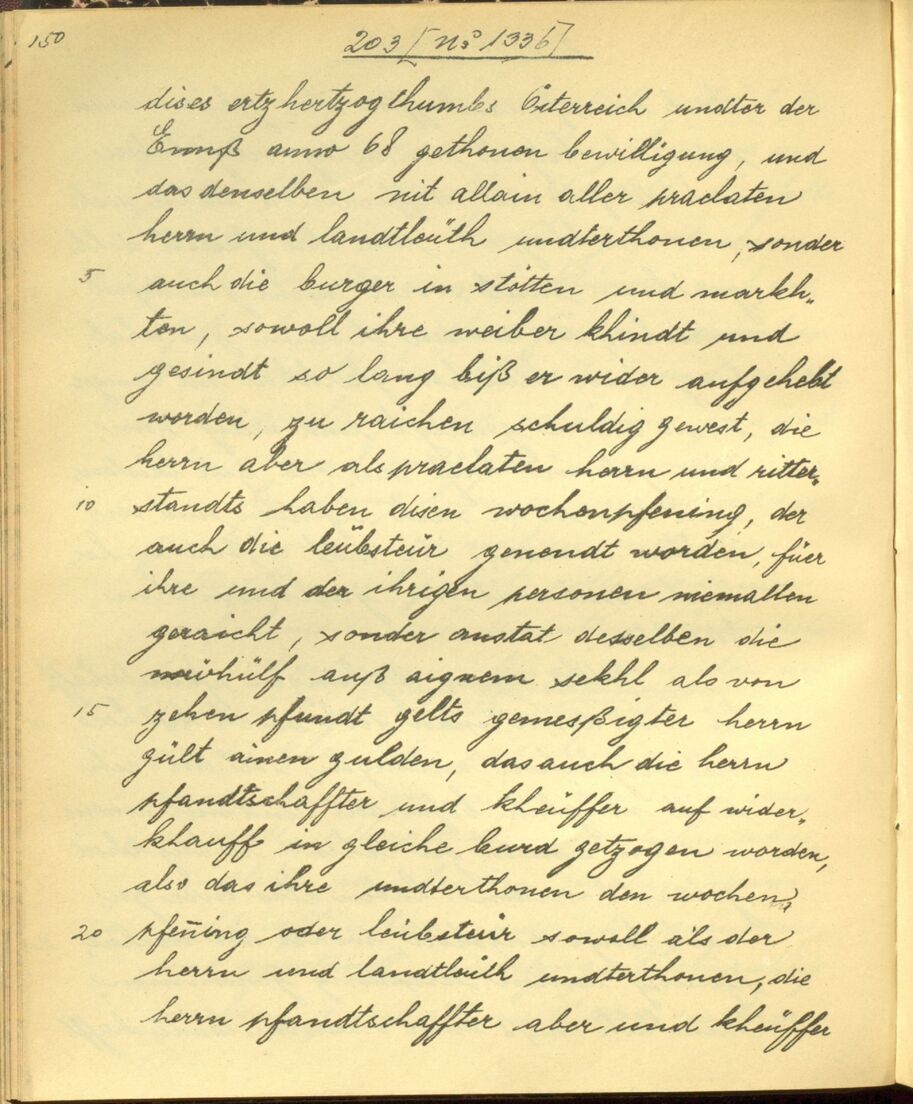 150
203 [No 1336]
dises ertzhertzogthumbs Österreich undter der
Ennß anno 68 gethonen bewilligung, und
das denselben nit allain aller praelaten
herrn und landtleüth undterthonen, sonder
5 auch die burger in stötten und markh„
ten, sowoll ihre weiber khindt und
gesindt so lang biß er wider aufgehebt
worden, zu raichen schuldig gewest, die
herrn aber als praelaten herrn und ritter„
10 standts haben disen wochenpfening, der
auch die leübsteür genendt worden, füer
ihre und der ihrigen personen niemallen
geraicht, sonder anstat desselben die
auß aignem sekhl als von
15 zehen pfundt gelts gemesßigter herrn
gült ainen gulden, das auch die herrn
pfandtschaffter und kheüffer auf wider„
khauff in gleiche burd getzogen worden,
also das ihre undterthonen den wochen
20 pfen̄ing oder leübsteür sowoll als der
herrn und landtleüth undterthonen, die
herrn pfandtschaffter aber und kheüffer